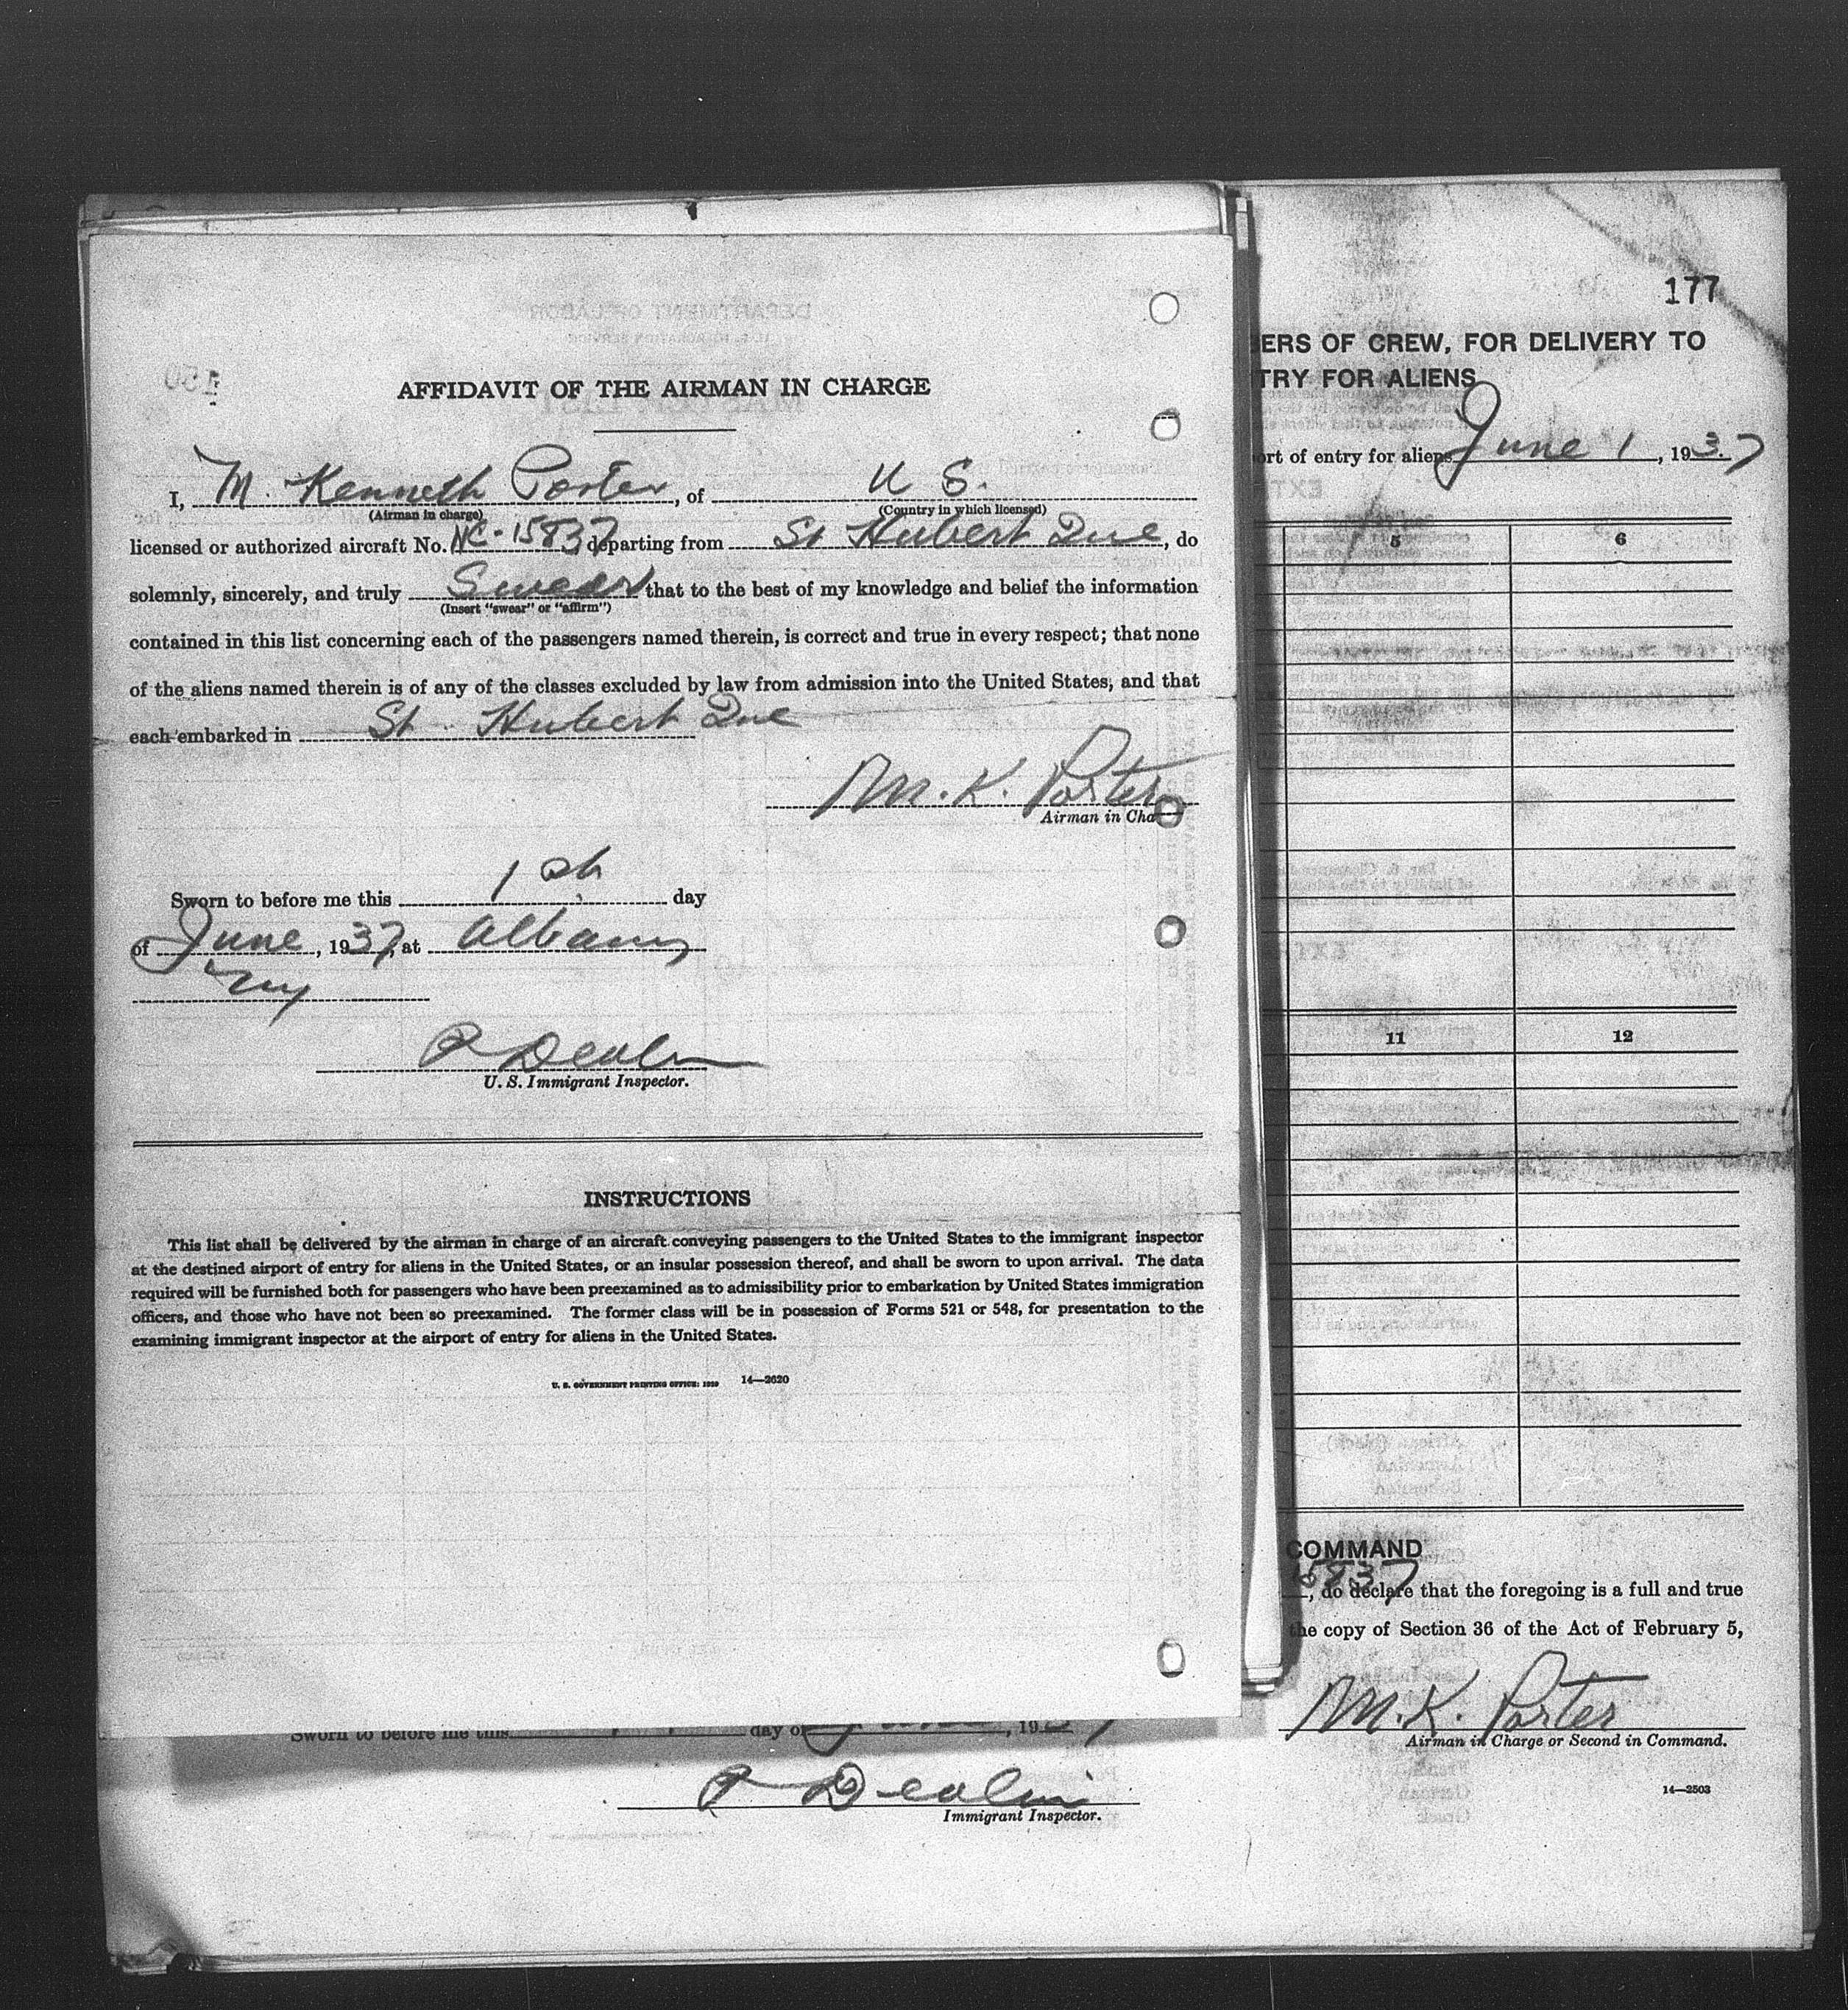 AFFIDAVIT OF THE AIRMAN IN CHARGE
I, M. Kenneth Porter, of U S.
(Airman in charge) (Country in which licensed)
licensed or authorized aircraft No. NC-15837, departing from St Hubert Que, do
solemnly, sincerely, and truly Swear that to the best of my knowledge and belief the information
(Insert "swear" or "affirm")
contained in this list concerning each of the passengers named therein, is correct and true in every respect; that none
of the aliens named therein is of any of the classes excluded by law from admission into the United States, and that
each embarked in St. Hubert Que
M. K. Porter
Airman in Cha
Sworn to before me this 1st day
of June, 1937, at Albany
NY
U. S. Immigrant Inspector.
INSTRUCTIONS
This list shall be delivered by the airman in charge of an aircraft conveying passengers to the United States to the immigrant inspector
at the destined airport of entry for aliens in the United States, or an insular possession thereof, and shall be sworn to upon arrival. The data
required will be furnished both for passengers who have been preexamined as to admissibility prior to embarkation by United States immigration
officers, and those who have not been so preexamined. The former class will be in possession of Forms 521 or 548, for presentation to the
examining immigrant inspector at the airport of entry for aliens in the United States.
U. S. GOVERNMENT PRINTING OFFICE: 14—2620
177
ERS OF CREW, FOR DELIVERY TO
TRY FOR ALIENS
ort of entry for aliens June 1, 1937
5 6
11 12
COMMAND
15837, do declare that the foregoing is a full and true
the copy of Section 36 of the Act of February 5,
M. K. Porter
Airman in Charge or Second in Command.
14—2503
Sworn to before me this day of June, 1937
Immigrant Inspector.